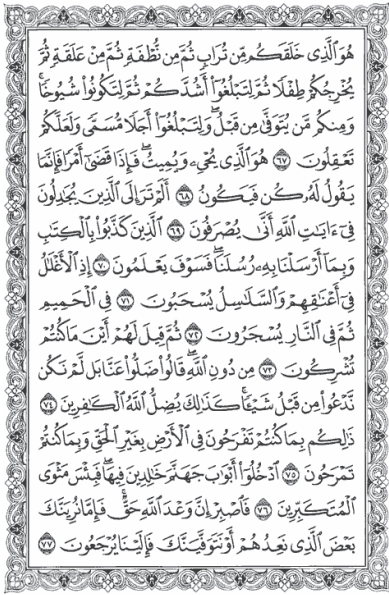 هُوَ الَّذِي خَلَقَكُم مِّن تُرَابٍ ثُمَّ مِن نُّطْفَةٍ ثُمَّ مِنْ عَلَقَةٍ ثُمَّ
يُخْرِجُكُمْ طِفْلًا ثُمَّ لِتَبْلُغُوٓا۟ أَشُدَّكُمْ ثُمَّ لِتَكُونُوا۟ شُيُوخًا ۚ
وَمِنكُم مَّن يُتَوَفَّىٰ مِن قَبْلُ ۖ وَلِتَبْلُغُوٓا۟ أَجَلًا مُّسَمًّى وَلَعَلَّكُمْ
تَعْقِلُونَ ٦٧ هُوَ الَّذِي يُحْيِۦ وَيُمِيتُ ۖ فَإِذَا قَضَىٰٓ أَمْرًا فَإِنَّمَا
يَقُولُ لَهُۥ كُن فَيَكُونُ ٦٨ أَلَمْ تَرَ إِلَى الَّذِينَ يُجَٰدِلُونَ
فِىٓ ءَايَٰتِ اللَّهِ أَنَّىٰ يُصْرَفُونَ ٦٩ الَّذِينَ كَذَّبُوا۟ بِالْكِتَٰبِ
وَبِمَآ أَرْسَلْنَا بِهِۦ رُسُلَنَا ۖ فَسَوْفَ يَعْلَمُونَ ٧٠ إِذِ الْأَغْلَٰلُ
فِىٓ أَعْنَٰقِهِمْ وَالسَّلَٰسِلُ يُسْحَبُونَ ٧١ فِي الْحَمِيمِ
ثُمَّ فِي النَّارِ يُسْجَرُونَ ٧٢ ثُمَّ قِيلَ لَهُمْ أَيْنَ مَا كُنتُمْ
تُشْرِكُونَ ٧٣ مِن دُونِ اللَّهِ ۖ قَالُوا۟ ضَلُّوا۟ عَنَّا بَل لَّمْ نَكُن
نَّدْعُوا۟ مِن قَبْلُ شَيْـًٔا ۚ كَذَٰلِكَ يُضِلُّ اللَّهُ الْكَٰفِرِينَ ٧٤
ذَٰلِكُم بِمَا كُنتُمْ تَفْرَحُونَ فِي الْأَرْضِ بِغَيْرِ الْحَقِّ وَبِمَا كُنتُمْ
تَمْرَحُونَ ٧٥ ادْخُلُوٓا۟ أَبْوَٰبَ جَهَنَّمَ خَٰلِدِينَ فِيهَا ۖ فَبِئْسَ مَثْوَى
الْمُتَكَبِّرِينَ ٧٦ فَاصْبِرْ إِنَّ وَعْدَ اللَّهِ حَقٌّ ۚ فَإِمَّا نُرِيَنَّكَ
بَعْضَ الَّذِي نَعِدُهُمْ أَوْ نَتَوَفَّيَنَّكَ فَإِلَيْنَا يُرْجَعُونَ ٧٧